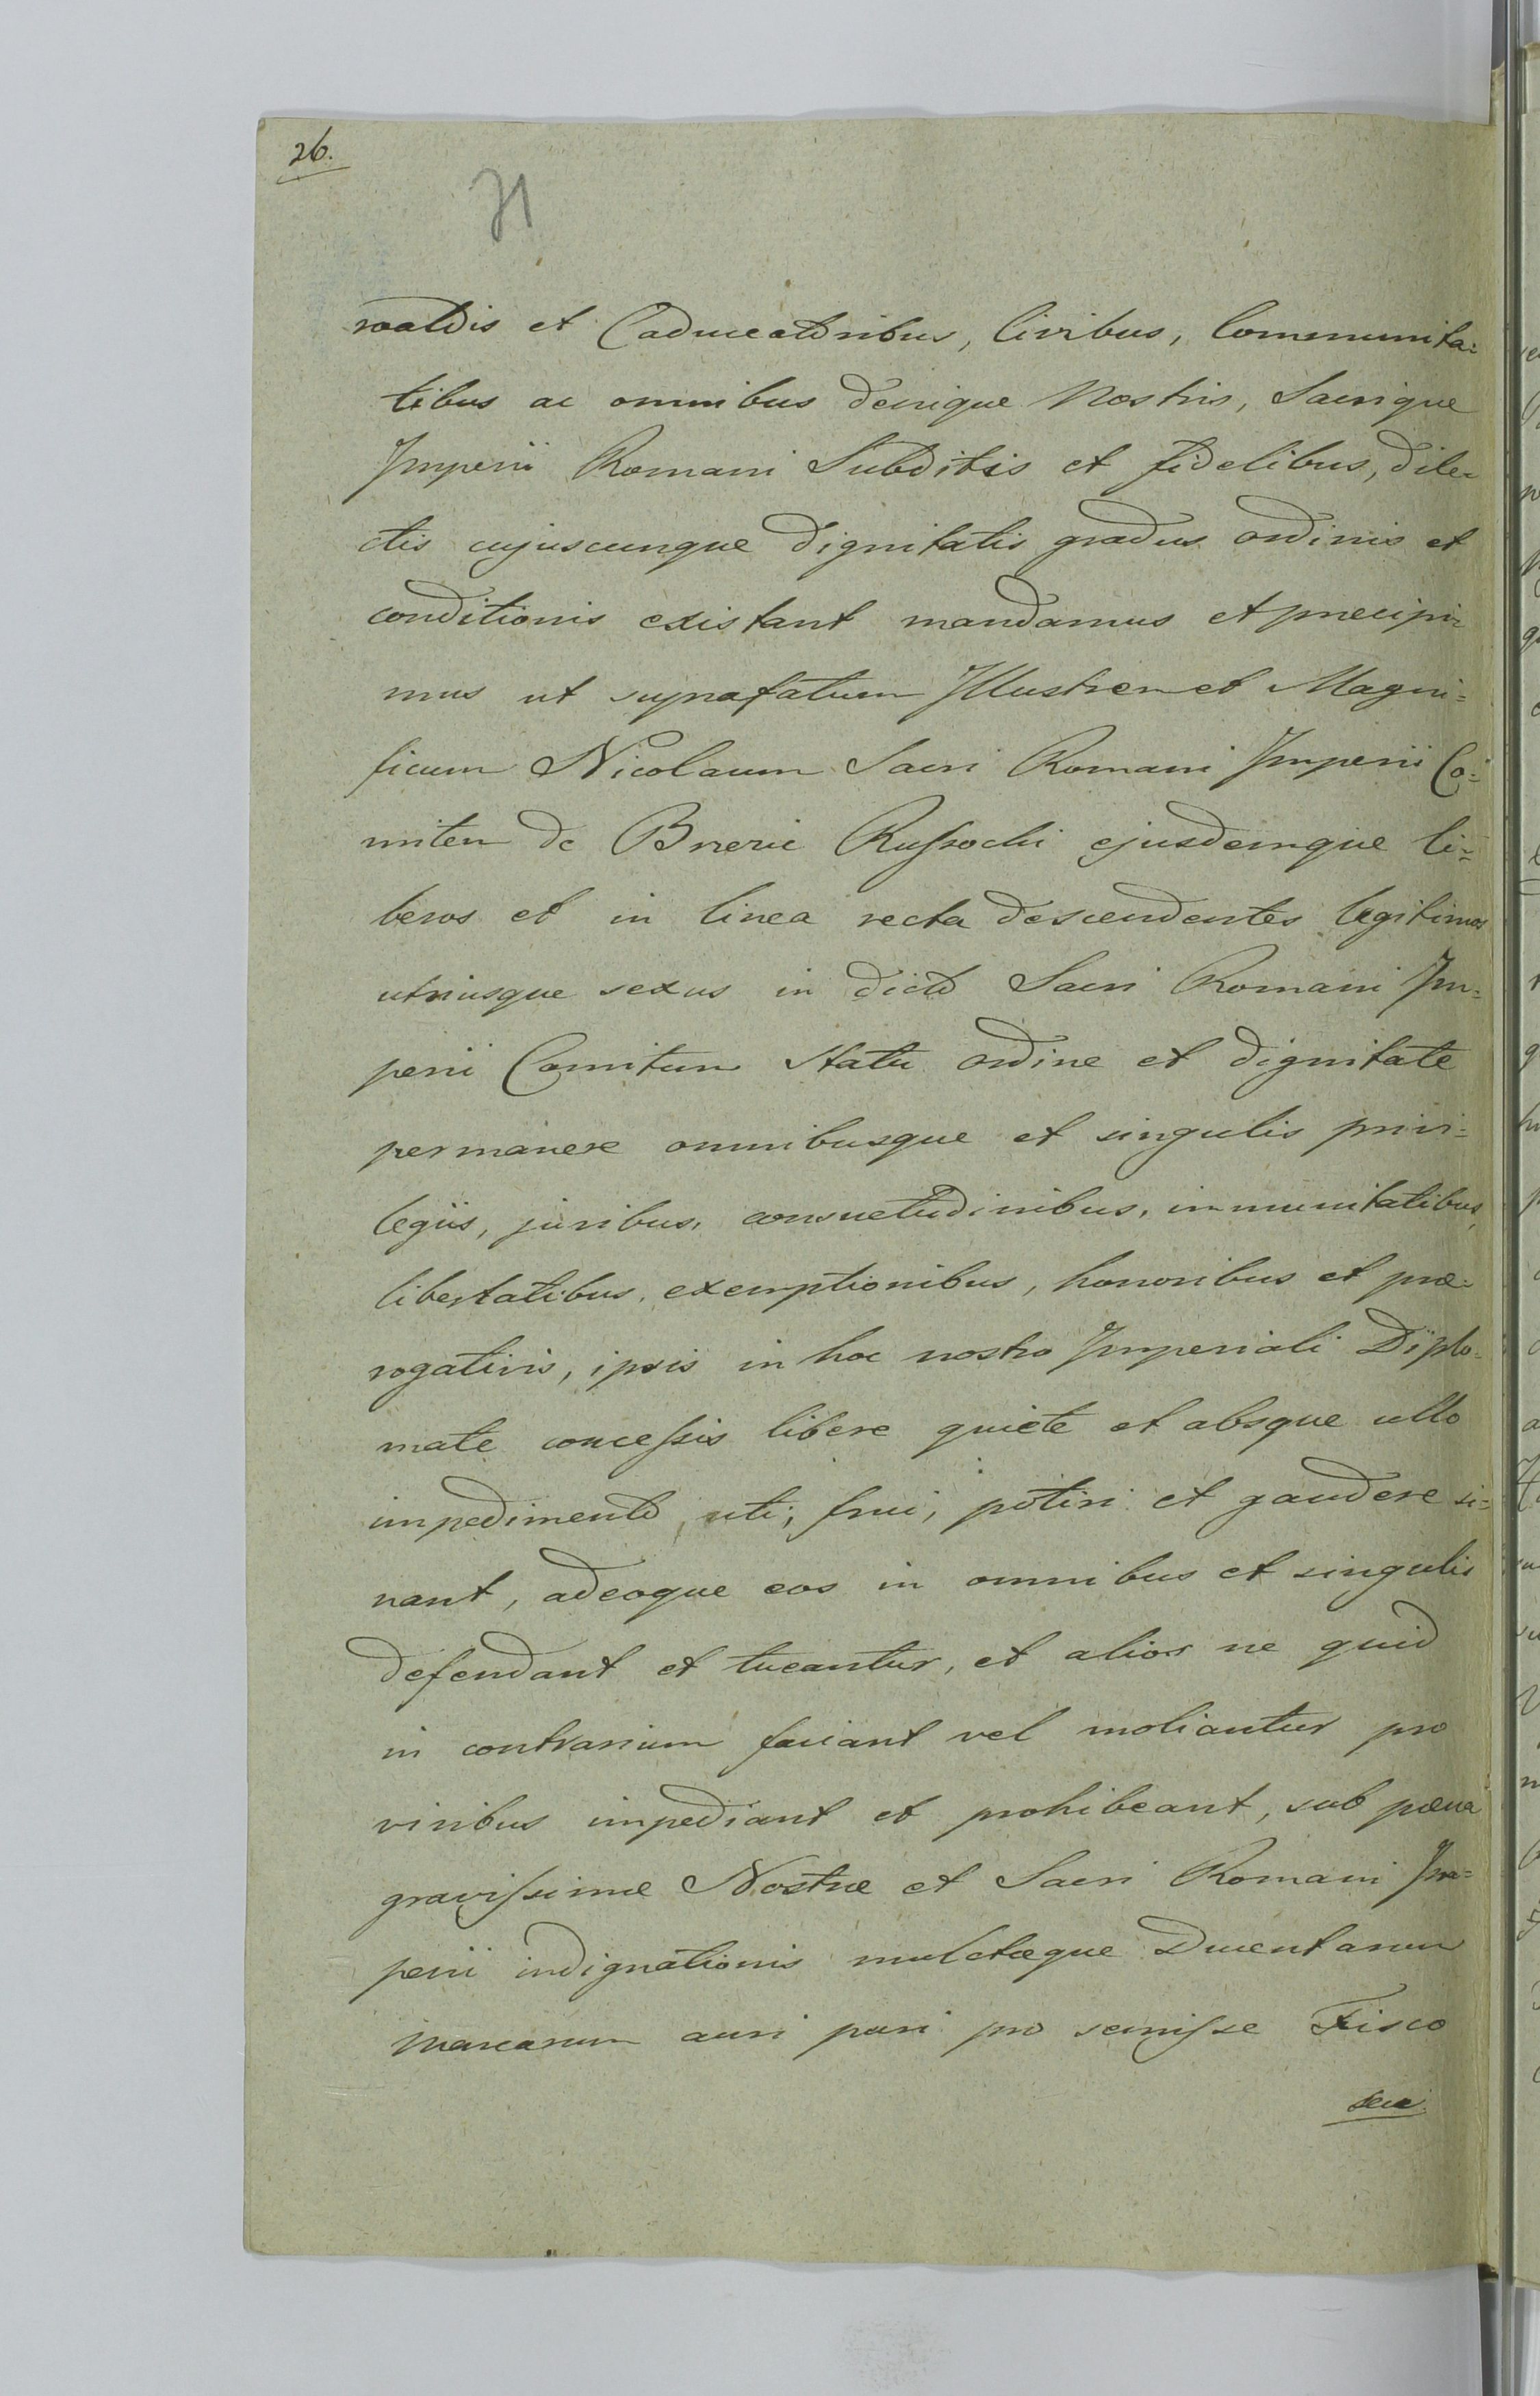 26.
71
roaldis et Caduceatoribus, Civibus, Communita=
tibus ac omnibus denique Nostris, Sacrique
Imperii Romani Subditis et fidelibus, dile-
ctis cujuscunque dignitatis gradus ordinis et
conditionis existant mandamus et præcipi-
mus ut supra fatum Illustrem et Magni=
ficum Nicolaum Sacri Romani Imperii Co=
mitem de Brzezie Russocki ejusdemque li=
beros et in linea recta descendentes legitimos
utriusque sexus in dicto Sacri Romani Im=
perii Comitum statu ordine et dignitate
permanere omnibusque et singulis privi=
legiis, juribus, consuetudinibus, immunitatibus,
libertatibus, exemptionibus, honoribus et præ-
rogativis, ipsis in hoc nostro Imperiali Diplo-
mate concessis libere quiete et absque ullo
impedimento, uti, frui, potiri et gaudere si=
nant, adeoque eos in omnibus et singulis
defendant et tueantur, et alios ne quid
in contrarium faciant vel moliantur pro
viribus impediant et prohibeant, sub pœna
gravissimæ Nostræ et Sacri Romani Im=
perii indignationis mulctæque Ducentarum
Marcarum auri puri pro semisse Fisco
seu